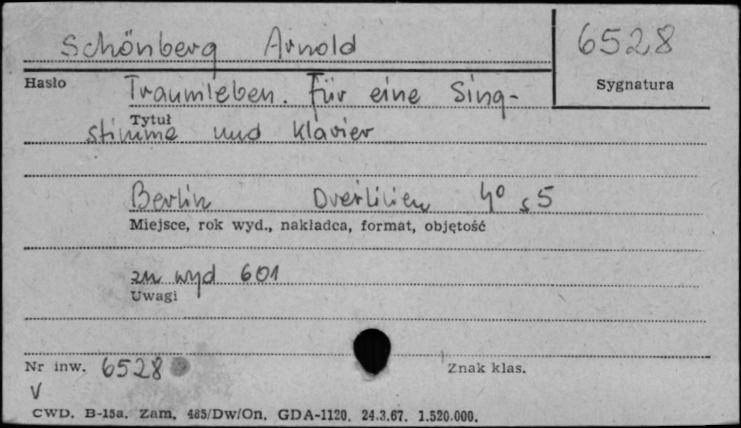 Schönberg Arnold
6528
Hasło
Sygnatura
Traumleben. Für eine Sing-
Tytuł
stimme und Klavier
Berlin Dreililien 4° s 5
Miejsce, rok wyd., nakładca, format, objętość
zn wyd 601
Uwagi
Nr inw. 6528
Znak klas.
V
CWD. B-15a. Zam. 485/Dw/On. GDA-1120. 24.3.67. 1.520.000.